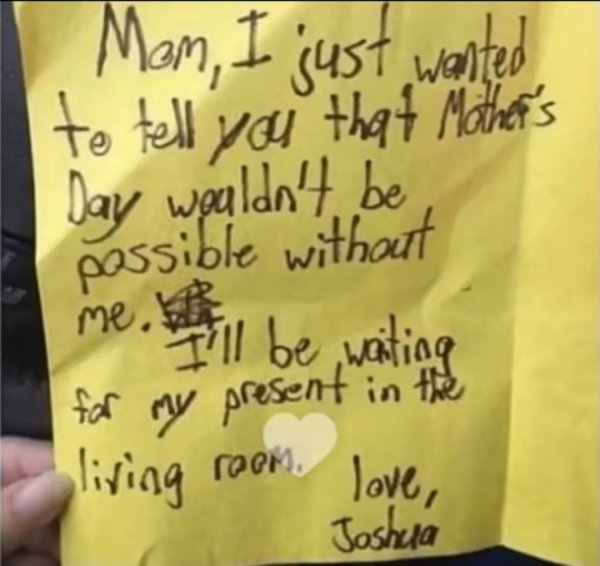 Mom, I just wanted
to tell you that Mother's
Day wouldn't be
possible without
me.
I'll be waiting
for my present in the
living room.
love,
Joshua